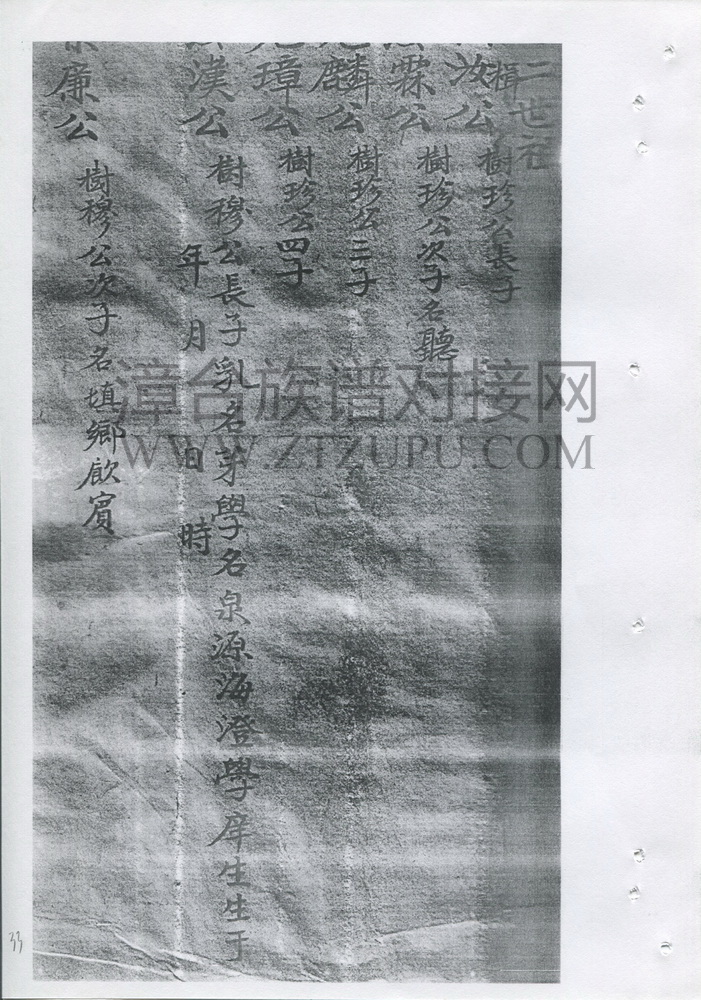 二世祖
楫汝公 樹珍公長子
霖公 樹珍公次子名聽
麟公 樹珍公三子
璋公 樹珍公四子
漢公 樹穆公長子乳名茅學名泉源海澄學庠生生于
年 月 日 時
廉公 樹穆公次子名填鄉飲賓
漳台族谱对接网
WWW.ZTZUPU.COM
33